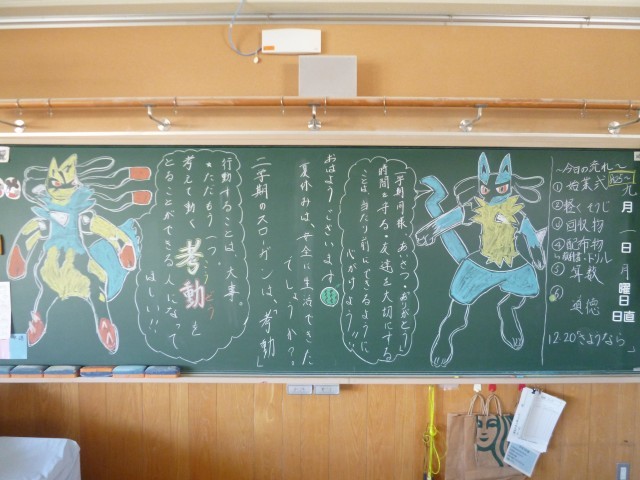 おはようございます。
夏休みは、安全に生活できた
でしょうか？
二学期のスローガンは、「考動」
一学期同様、あいさつ・ありがとう・
時間を守る・友達を大切にする
ことは、当たり前にできるように
心がけよう!!
行動することは、大事。
ただもう一つ。
考えて動く考動を
とることができる人になって
ほしい!!
九月一日月曜日
日直
〜今日の流れ〜
①始業式
②軽くそうじ
③回収物
④配布物
⑤算数
⑥道徳
12:20「さようなら」